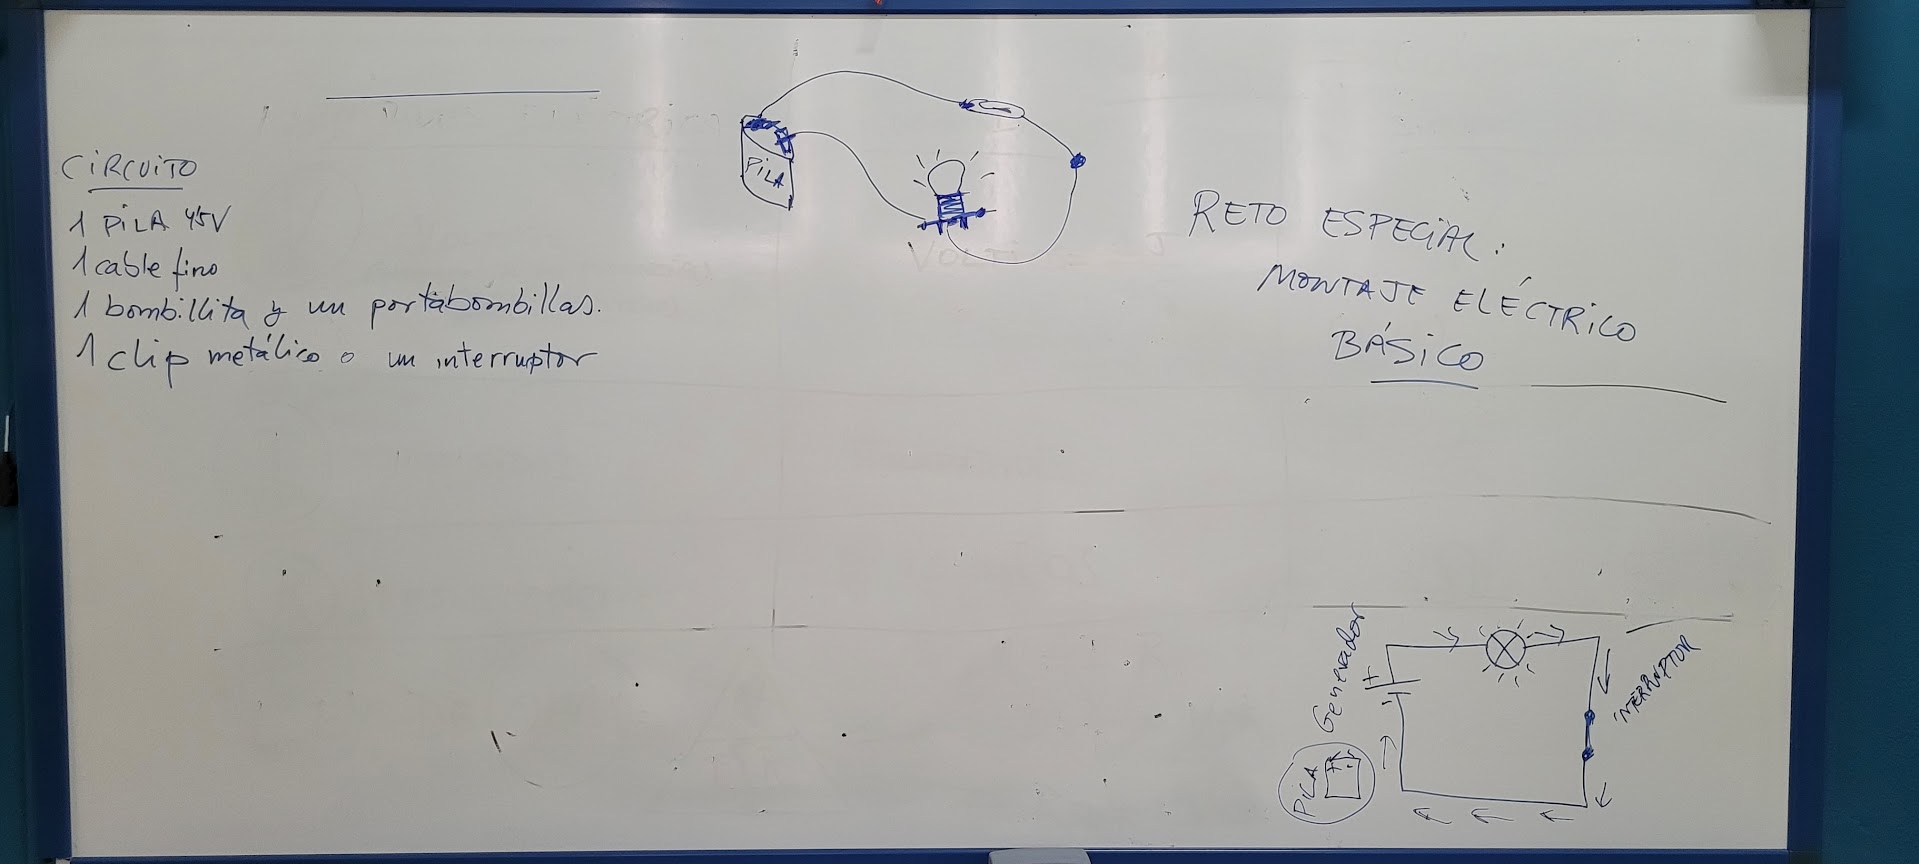 CIRCUITO
1 PILA 4'5V
1 cable fino
1 bombillita y un portabombillas.
1 clip metálico o un interruptor
PILA
RETO ESPECIAL:
MONTAJE ELÉCTRICO
BÁSICO
Generador
+
-
INTERRUPTOR
PILA
+ -